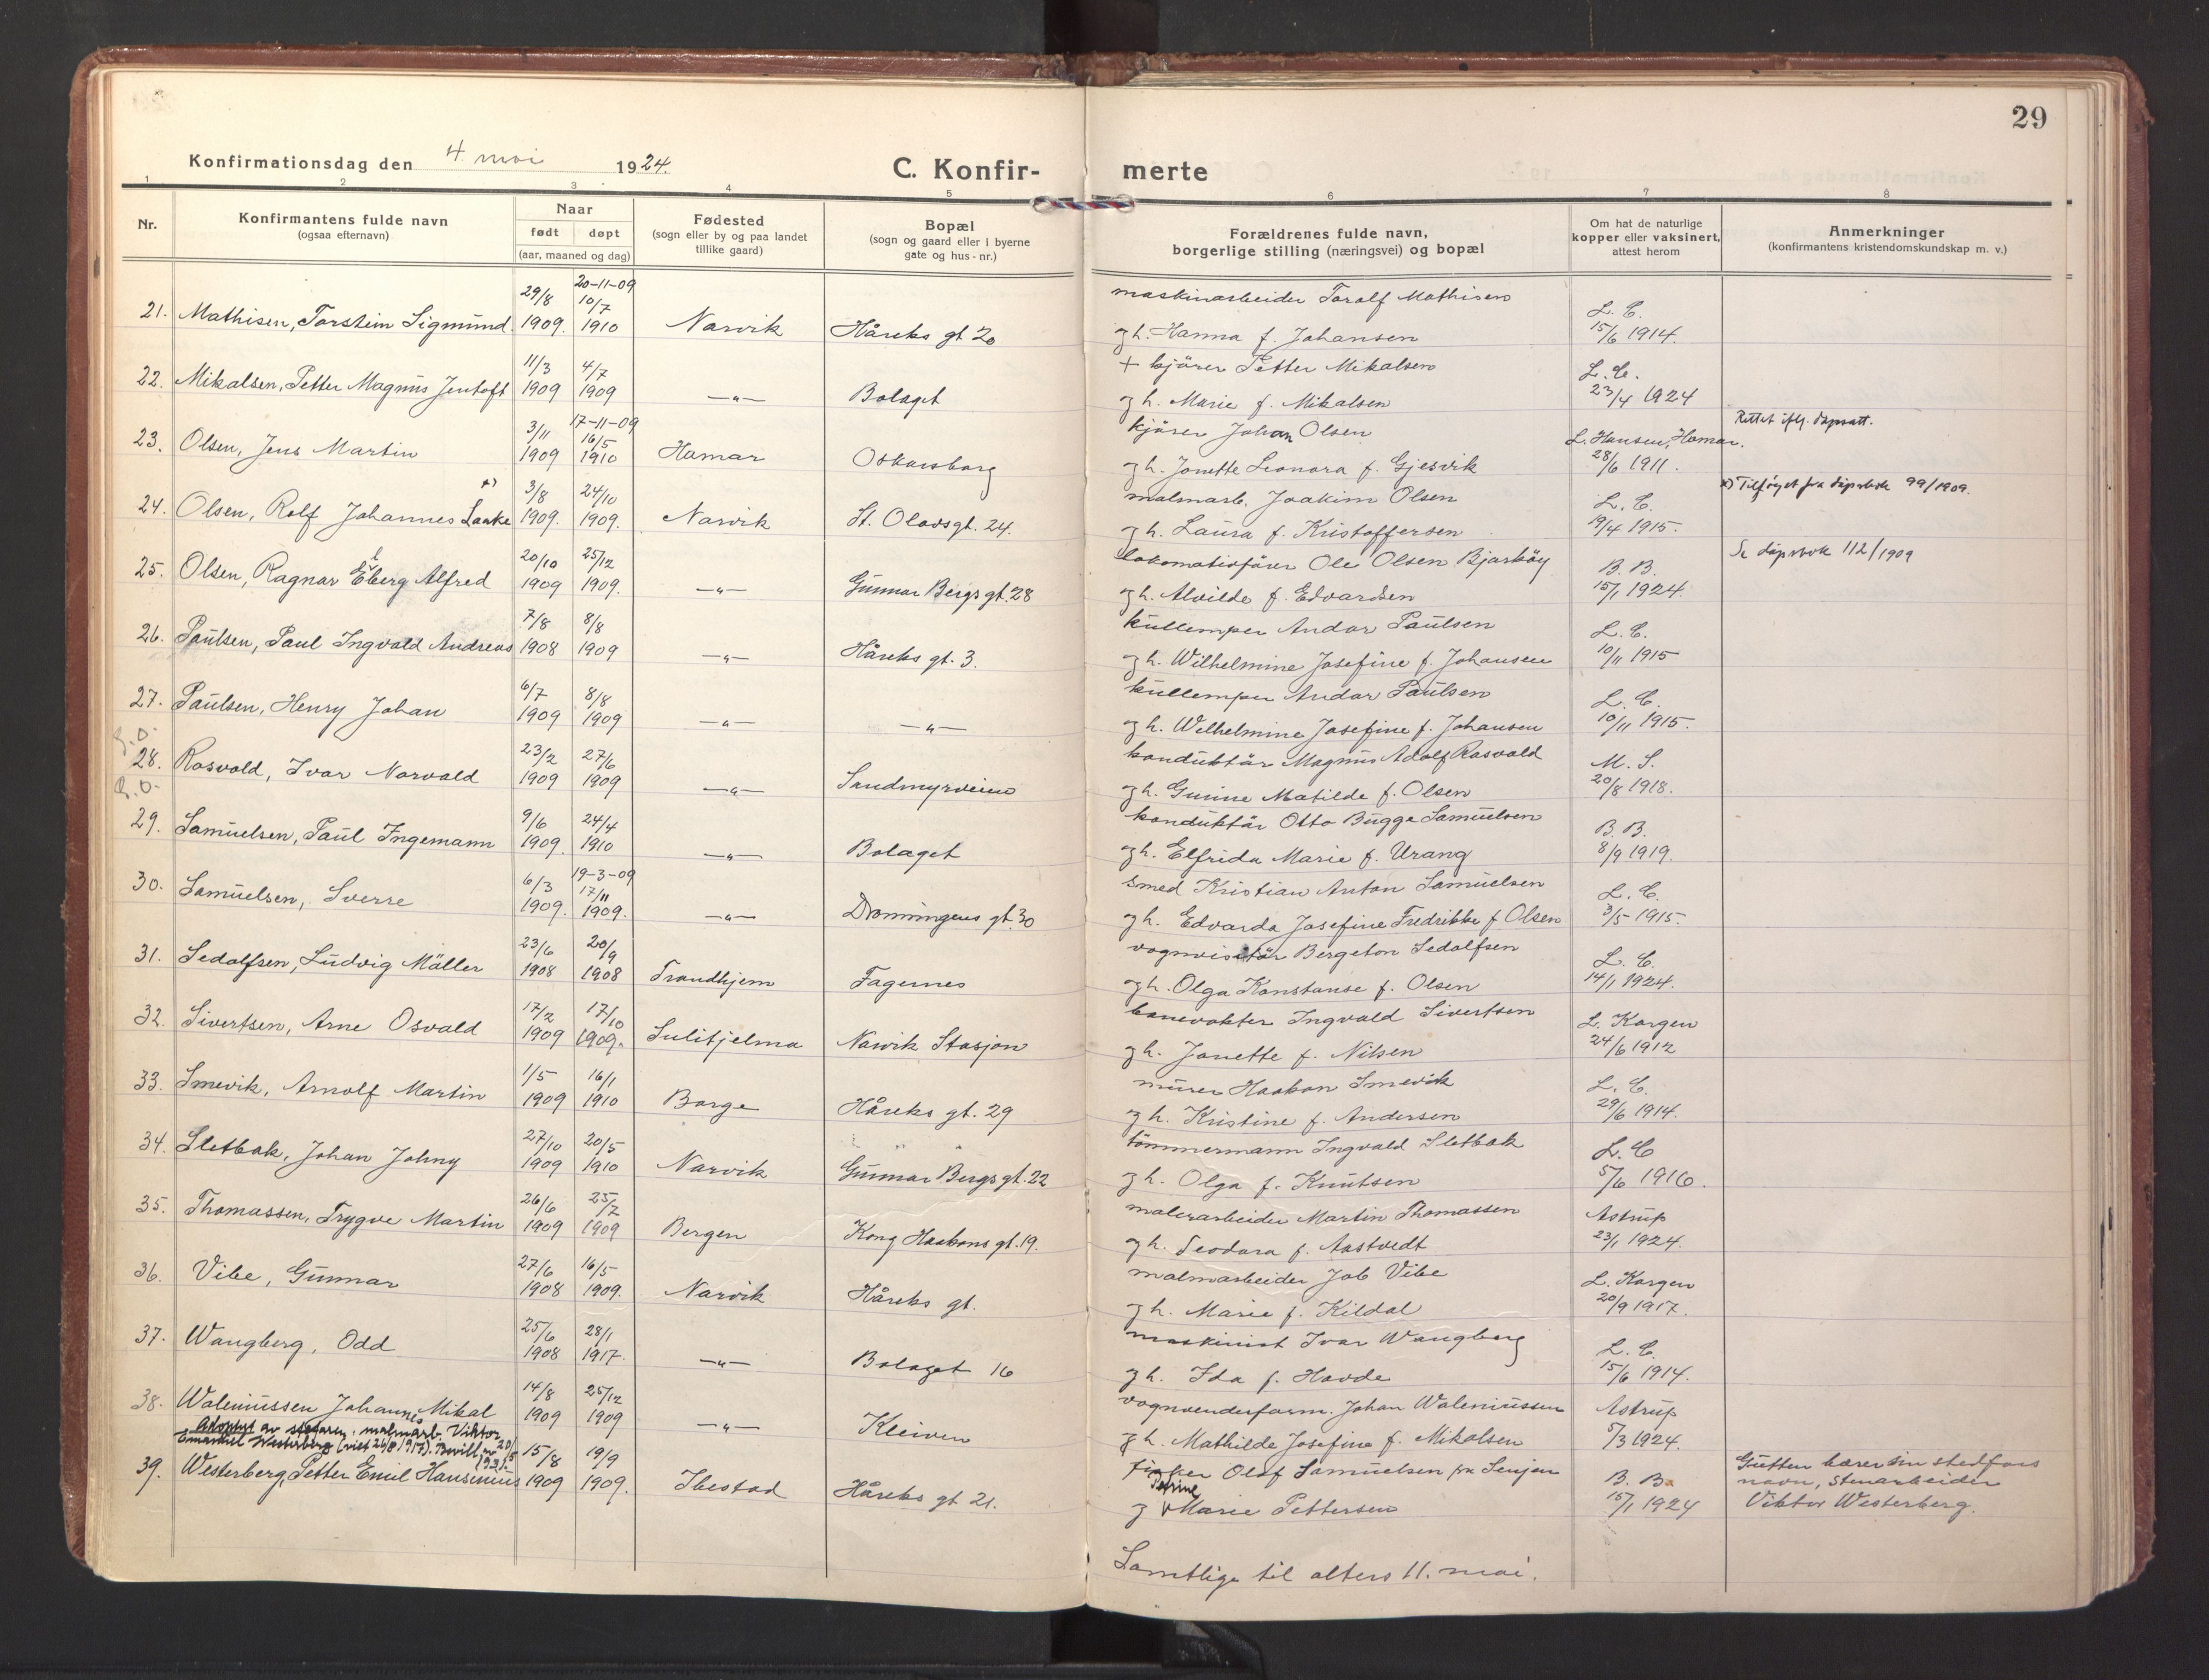 29
Konfirmationsdag den 4. mai 1924.
C. Konfir-merte
1 2 3 4 5 6 7 8
Nr.
Konfirmantens fulde navn
(ogsaa efternavn)
Naar
født døpt
(aar, maaned og dag)
Fødested
(sogn eller by og paa landet
tillike gaard)
Bopæl
(sogn og gaard eller i byerne
gate og hus-nr.)
Forældrenes fulde navn,
borgerlige stilling (næringsvei) og bopæl
Om hat de naturlige
kopper eller vaksinert,
attest herom
Anmerkninger
(konfirmantens kristendomskundskap m. v.)
29/8 20-11-09 10/7 maskinarbeider Toralf Mathisen L. C.
21. Mathisen, Torstein Sigmund. 1909. 1910 Narvik Håreks gt 20 g h. Hanna f. Johansen 15/6 1914.
11/3 4/7 + kjörer Petter Mikalsen L. C.
22. Mikalsen, Petter Magnus Jentoft 1909 1909 —"— Bolaget g h. Marie f. Mikalsen 23/4 1924
3/11 17-11-09 16/5 kjörer Johan Olsen L. Hansen, Hamar. Rettet iflg. dåpsatt.
23. Olsen, Jens Martin 1909 1910 Hamar Oskarsborg g h. Jonette Leonora f. Gjesvik 28/6 1911.
x) 3/8 24/10 malmarb. Joakim Olsen L. C. x) Tilföyet fra dåpsbok 99/1909.
24. Olsen, Rolf Johannes Laake 1909. 1909. Narvik St. Olavsgt. 24. g h. Laura f. Kristoffersen 19/4 1915.
20/10 25/12 lokomotivförer Ole Olsen Bjarköy B. B. Se dåpsbok 112/1909
25. Olsen, Ragnar Eberg Alfred 1909 1909. —"— Gunnar Bergs gt. 28 g h. Alvilde f. Edvardsen 15/1 1924.
7/8 8/8 kullemper Andor Paulsen L. C.
26. Paulsen, Paul Ingvald Andreas 1908 1909 —"— Håreks gt. 3. g h. Wilhelmine Josefine f. Johansen 10/11 1915
6/7 8/8 kullemper Andor Paulsen L. C.
27. Paulsen, Henry Johan 1909 1909 —"— —"— g h. Wilhelmine Josefine f. Johansen 10/11 1915.
23/2 27/6 konduktör Magnus Adolf Rosvold M. S.
28. Rosvold, Ivar Norvald 1909 1909 —"— Sandmyrveien g h. Gurine Matilde f. Olsen 20/8 1918.
9/6 24/4 konduktör Otto Bugge Samuelsen B. B.
29. Samuelsen, Paul Ingemann 1909. 1910 —"— Bolaget g h. Elfrida Marie f. Urang 8/9 1919.
6/3 19-3-09 17/11 smed Kristian Anton Samuelsen L. C.
30. Samuelsen, Sverre 1909. 1909. —"— Dronningens gt. 30 g h. Edvarda Josefine Fredrikke f Olsen 3/5 1915.
23/6 20/9 vognvisitör Bergeton Sedolfsen L. C.
31. Sedolfsen, Ludvig Möller 1908 1908 Trondhjem Fagernes g h. Olga Konstanse f. Olsen 14/1 1924.
17/2 17/10 banevokter Ingvald Sivertsen L. Korgen
32. Sivertsen, Arne Osvald 1909 1909. Sulitjelma Narvik Stasjon g h. Jonette f. Nilsen 24/6 1912
1/5 16/1 murer Haakon Smevik L. C.
33. Smevik, Arnolf Martin 1909 1910 Borge Håreks gt. 29 g h. Kristine f. Andersen 29/6 1914.
27/10 20/5 tömmermann Ingvald Sletbak L. C
34. Sletbak, Johan Johny 1909 1910 Narvik Gunnar Bergs gt. 22 g h. Olga f. Knutsen 5/6 1916.
26/6 25/7 malerarbeider Martin Thomassen Astrup
35. Thomassen, Trygve Martin 1909 1909 Bergen Kong Haakons gt. 19. g h. Teodora f. Aastvedt 23/1 1924.
27/6 16/5 malmarbeider Job Vibe L. Korgen
36. Vibe, Gunnar 1908 1909. Narvik Håreks gt. g h. Marie f. Kildal 20/9 1917.
25/6 28/1 maskinist Ivar Wangberg L. C.
37. Wangberg, Odd 1908 1917. —"— Bolaget 16 g h. Ida f. Hovde 15/6 1914.
14/8 25/12 vognvenderform. Johan Waleniussen Astrup
38. Waleniussen Johannes Mikal 1909 1909 —"— Kleiven g h. Mathilde Josefine f. Mikalsen 5/3 1924.
Adoptert av stefaren, malmarb. Viktor
Emanuel Westerberg (viet 26/8 1917). Bevilln. 20/5 1921.
15/8 19/9 fisker Olaf Samuelsen fra Senjen B. B. Gutten bærer sin stedfars
39. Westerberg, Petter Emil Hansinius 1909 1909. Ibestad Håreks gt 21. g Petrine Marie Pettersen 15/1 1924 navn, stenarbeider
Viktor Westerberg.
Samtlige til alters 11. mai.